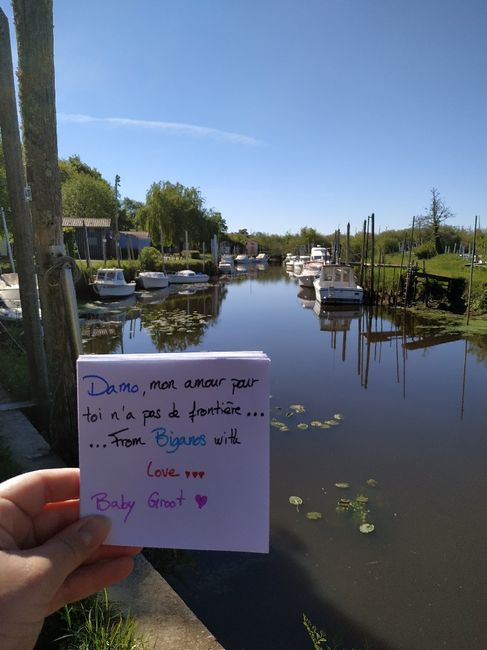 Damo, mon amour pour
toi n'a pas de frontière ...
... From Biganos with
Love ...
Baby Groot